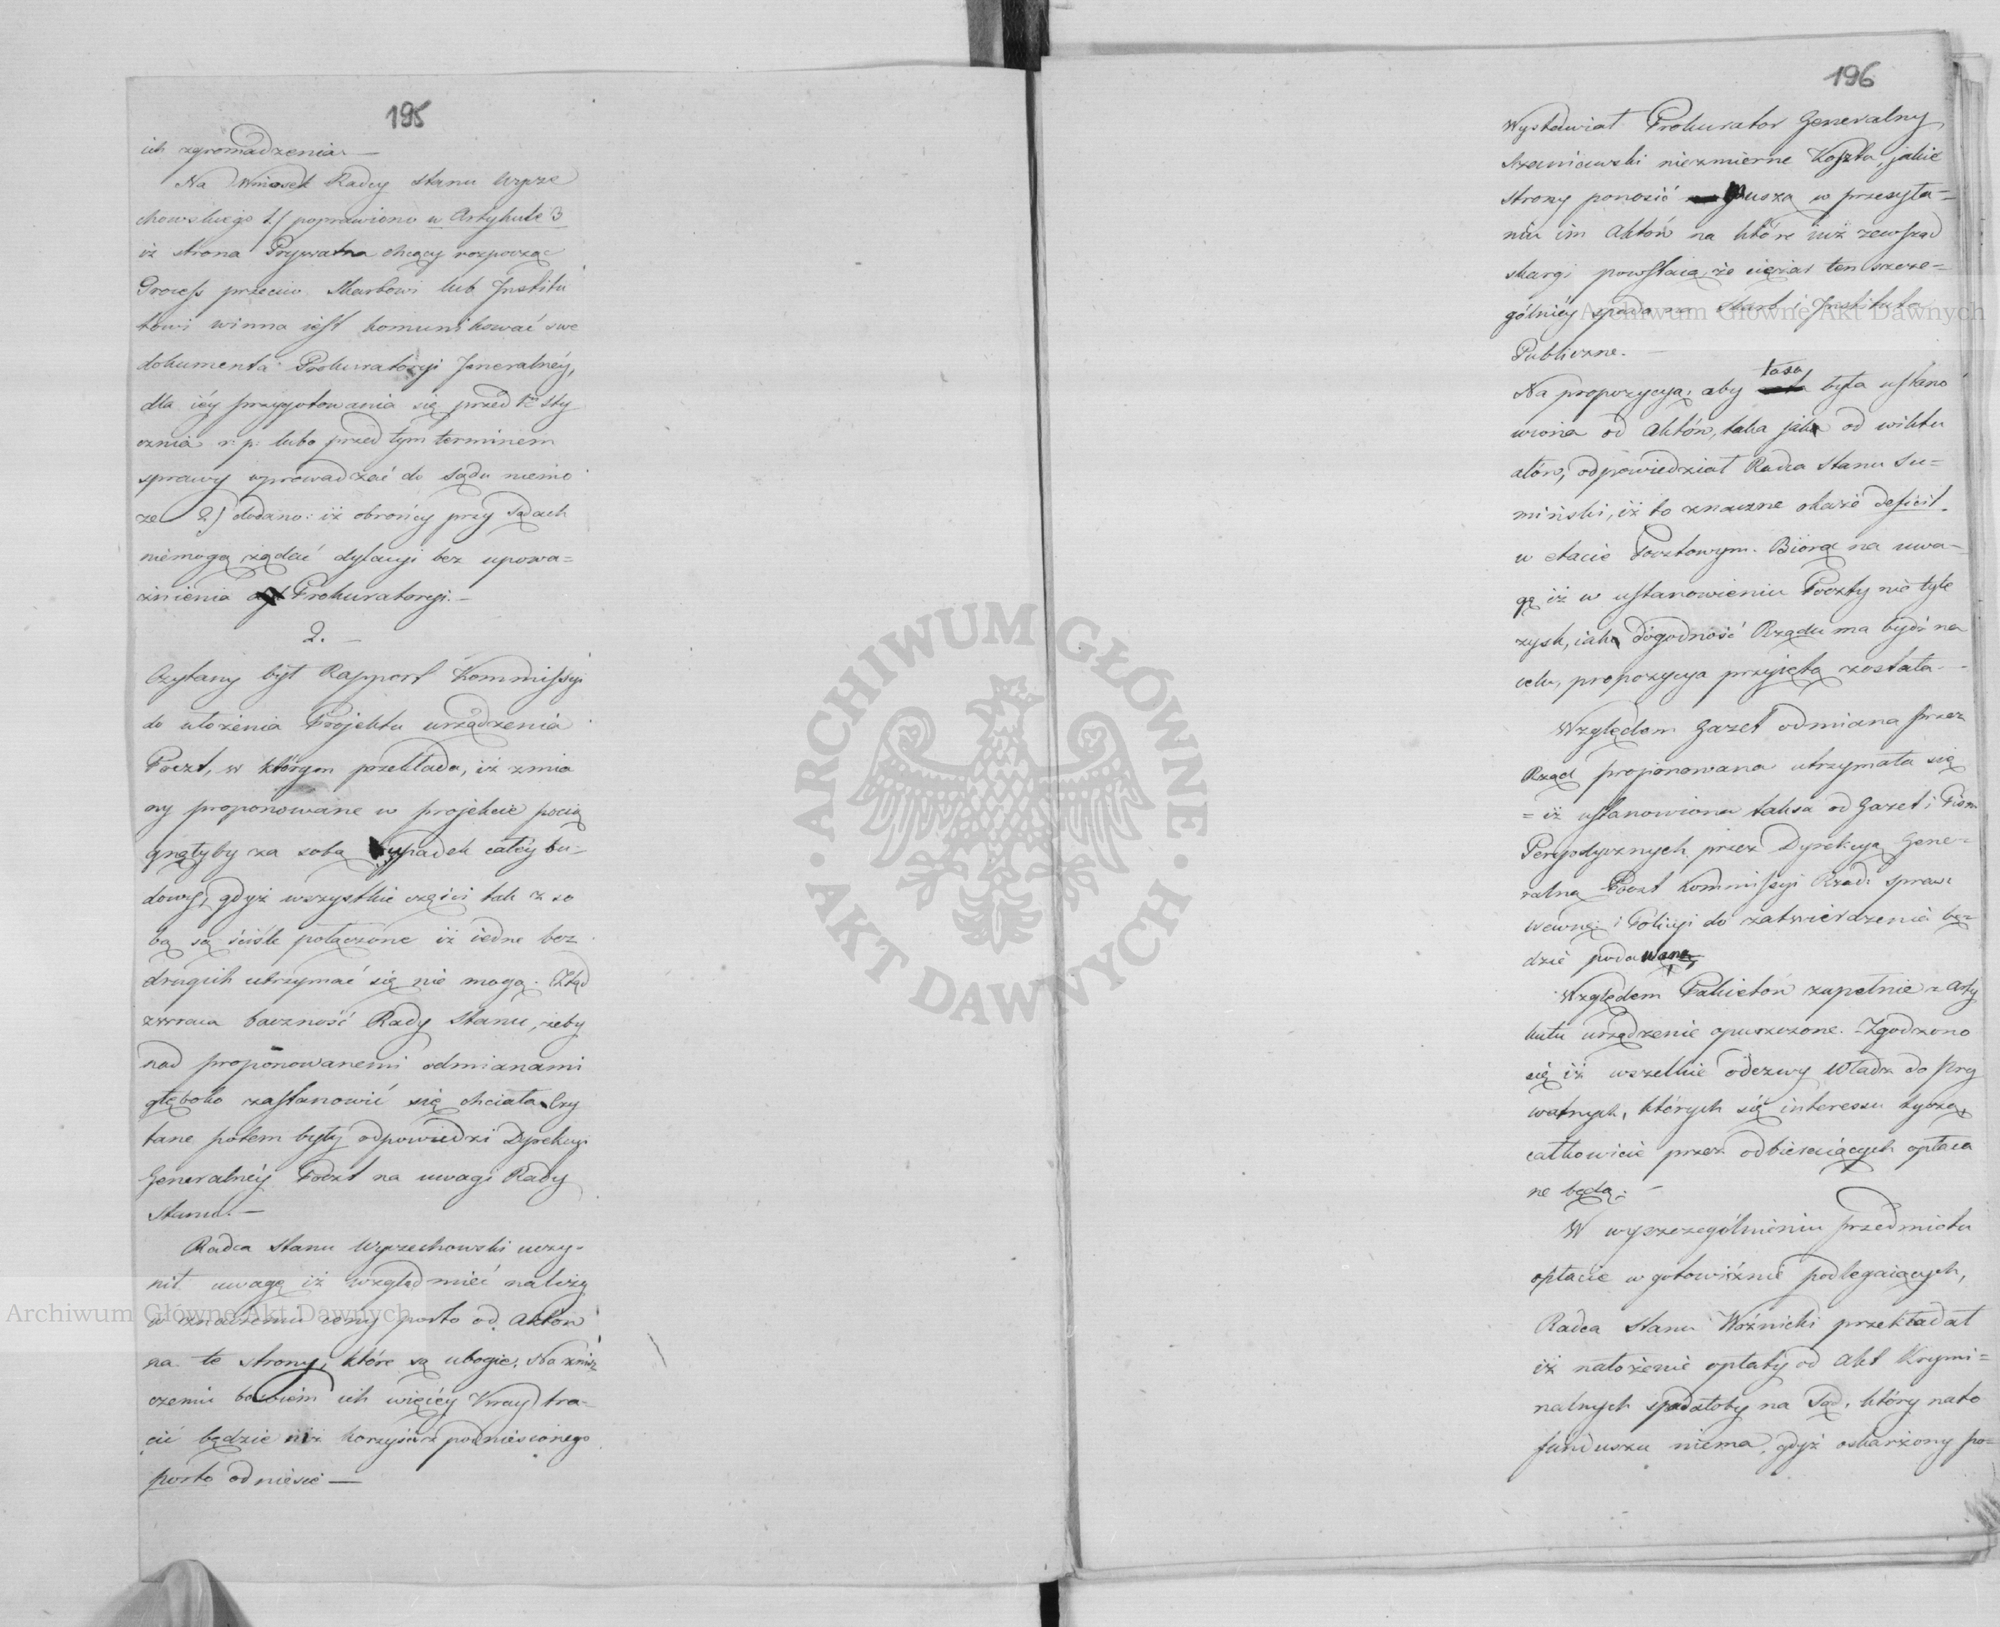 195
ich zgromadzenia. —
Na Wniosek Radcy Stanu Wyrze
chowskiego 1/ poprawiono w Artykule 3
iż strona Prywatna chcący rozpocząć
Process przeciw Skarbowi lub Institu
towi winna iest komunikować swe
dokumenta Prokuratoryi Jeneralnéy,
dla iéy przygotowania się przed 1m Sty
cznia r: p: lubo przed tym terminem
sprawy wprowadzać do sądu niemo
że 2/ dodano: iż obrońcy przy Sądach
niemogą żądać dylacyi bez upowa=
żnienia Prokuratoryi. —
2. —
Czytany był Rapport Kommissyi
do ułożenia Projektu urządzenia
Poczt, w którym przekłada, iż zmia
ny proponowane w projekcie pocią
gnęłyby za sobą upadek całéy bu-
dowy, gdyż wszystkie części tak z so
bą są ściśle połączone iż iedne bez
drugich utrzymać się nie mogą. Ztąd
zwraca baczność Rady Stanu, żeby
nad proponowanemi odmianami
głęboko zastanowić się chciała. Czy
tane potem były odpowiedzi Dyrekcyi
Generalnéy Poczt na uwagi Rady
Stanu. —
Radca Stanu Wyrzechowski uczy-
nił uwagę iż wzgląd mieć należy
w znaczeniu ceny porto od Aktów
na te strony, które są ubogie. Na znisz
czeniu bowiem ich więcéy Kray tra-
cić będzie niż korzyści z podniesionego
porto odniesie —
196
Wystawiał Prokurator Generalny
Szaniawski niezmierne Koszta, jakie
strony ponosić muszą w przesyła=
niu im Aktów na które iuż zewsząd
skargi powstaią, że ciężar ten szcze=
gólniéy spada na Skarb i Instituta
Publiczne. —
Na propozycyą, aby taxa była ustano
wiona od Aktów, taka jaka od wiktu
ałów, odpowiedział Radca Stanu Su=
miński, iż to znaczne okaże deficit
w etacie Pocztowym. Biorąc na uwa-
gę iż w ustanowieniu Poczty nie tyle
zysk, iak dogodność Rządu ma bydź na
celu, propozycya przyiętą została. -
Względem Gazet odmiana przez
Rząd proponowana utrzymała się
= iż ustanowiona taksa od Gazet i Pism
Peryodycznych przez Dyrekcyą Gene-
ralną Poczt Kommissyi Rząd: spraw
wewnę: i Policyi do zatwierdzenia bę=
dzie podawana,
Względem Pakietów zupełnie z Arty
kułu urządzenie opuszczone. - Zgodzono
się iż wszelkie odezwy Władz do Pry
watnych, których się interessu tyczą,
całkowicie przez odbieraiących opłaca
ne będą. —
W wyszczególnieniu przedmiotu
opłacie w gotowiźnie podlegaiących,
Radca Stanu Woźnicki przekładał
iż nałożenie opłaty od Akt Krymi=
nalnych spadałoby na Sąd, który na to
funduszu niema, gdyż oskarżony po=
Archiwum Główne Akt Dawnych
ARCHIWUM GŁÓWNE · AKT DAWNYCH ·
Archiwum Główne Akt Dawnych